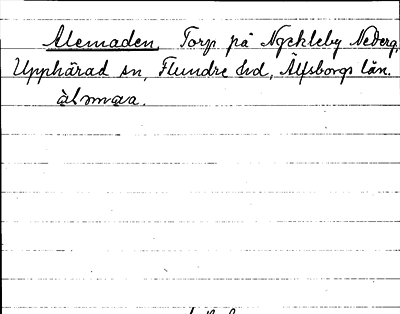 Alemaden, Torp på Nyckleby Nederg,
Upphärad sn, Flundre hd, Älfsborgs län.
àlmɷa.